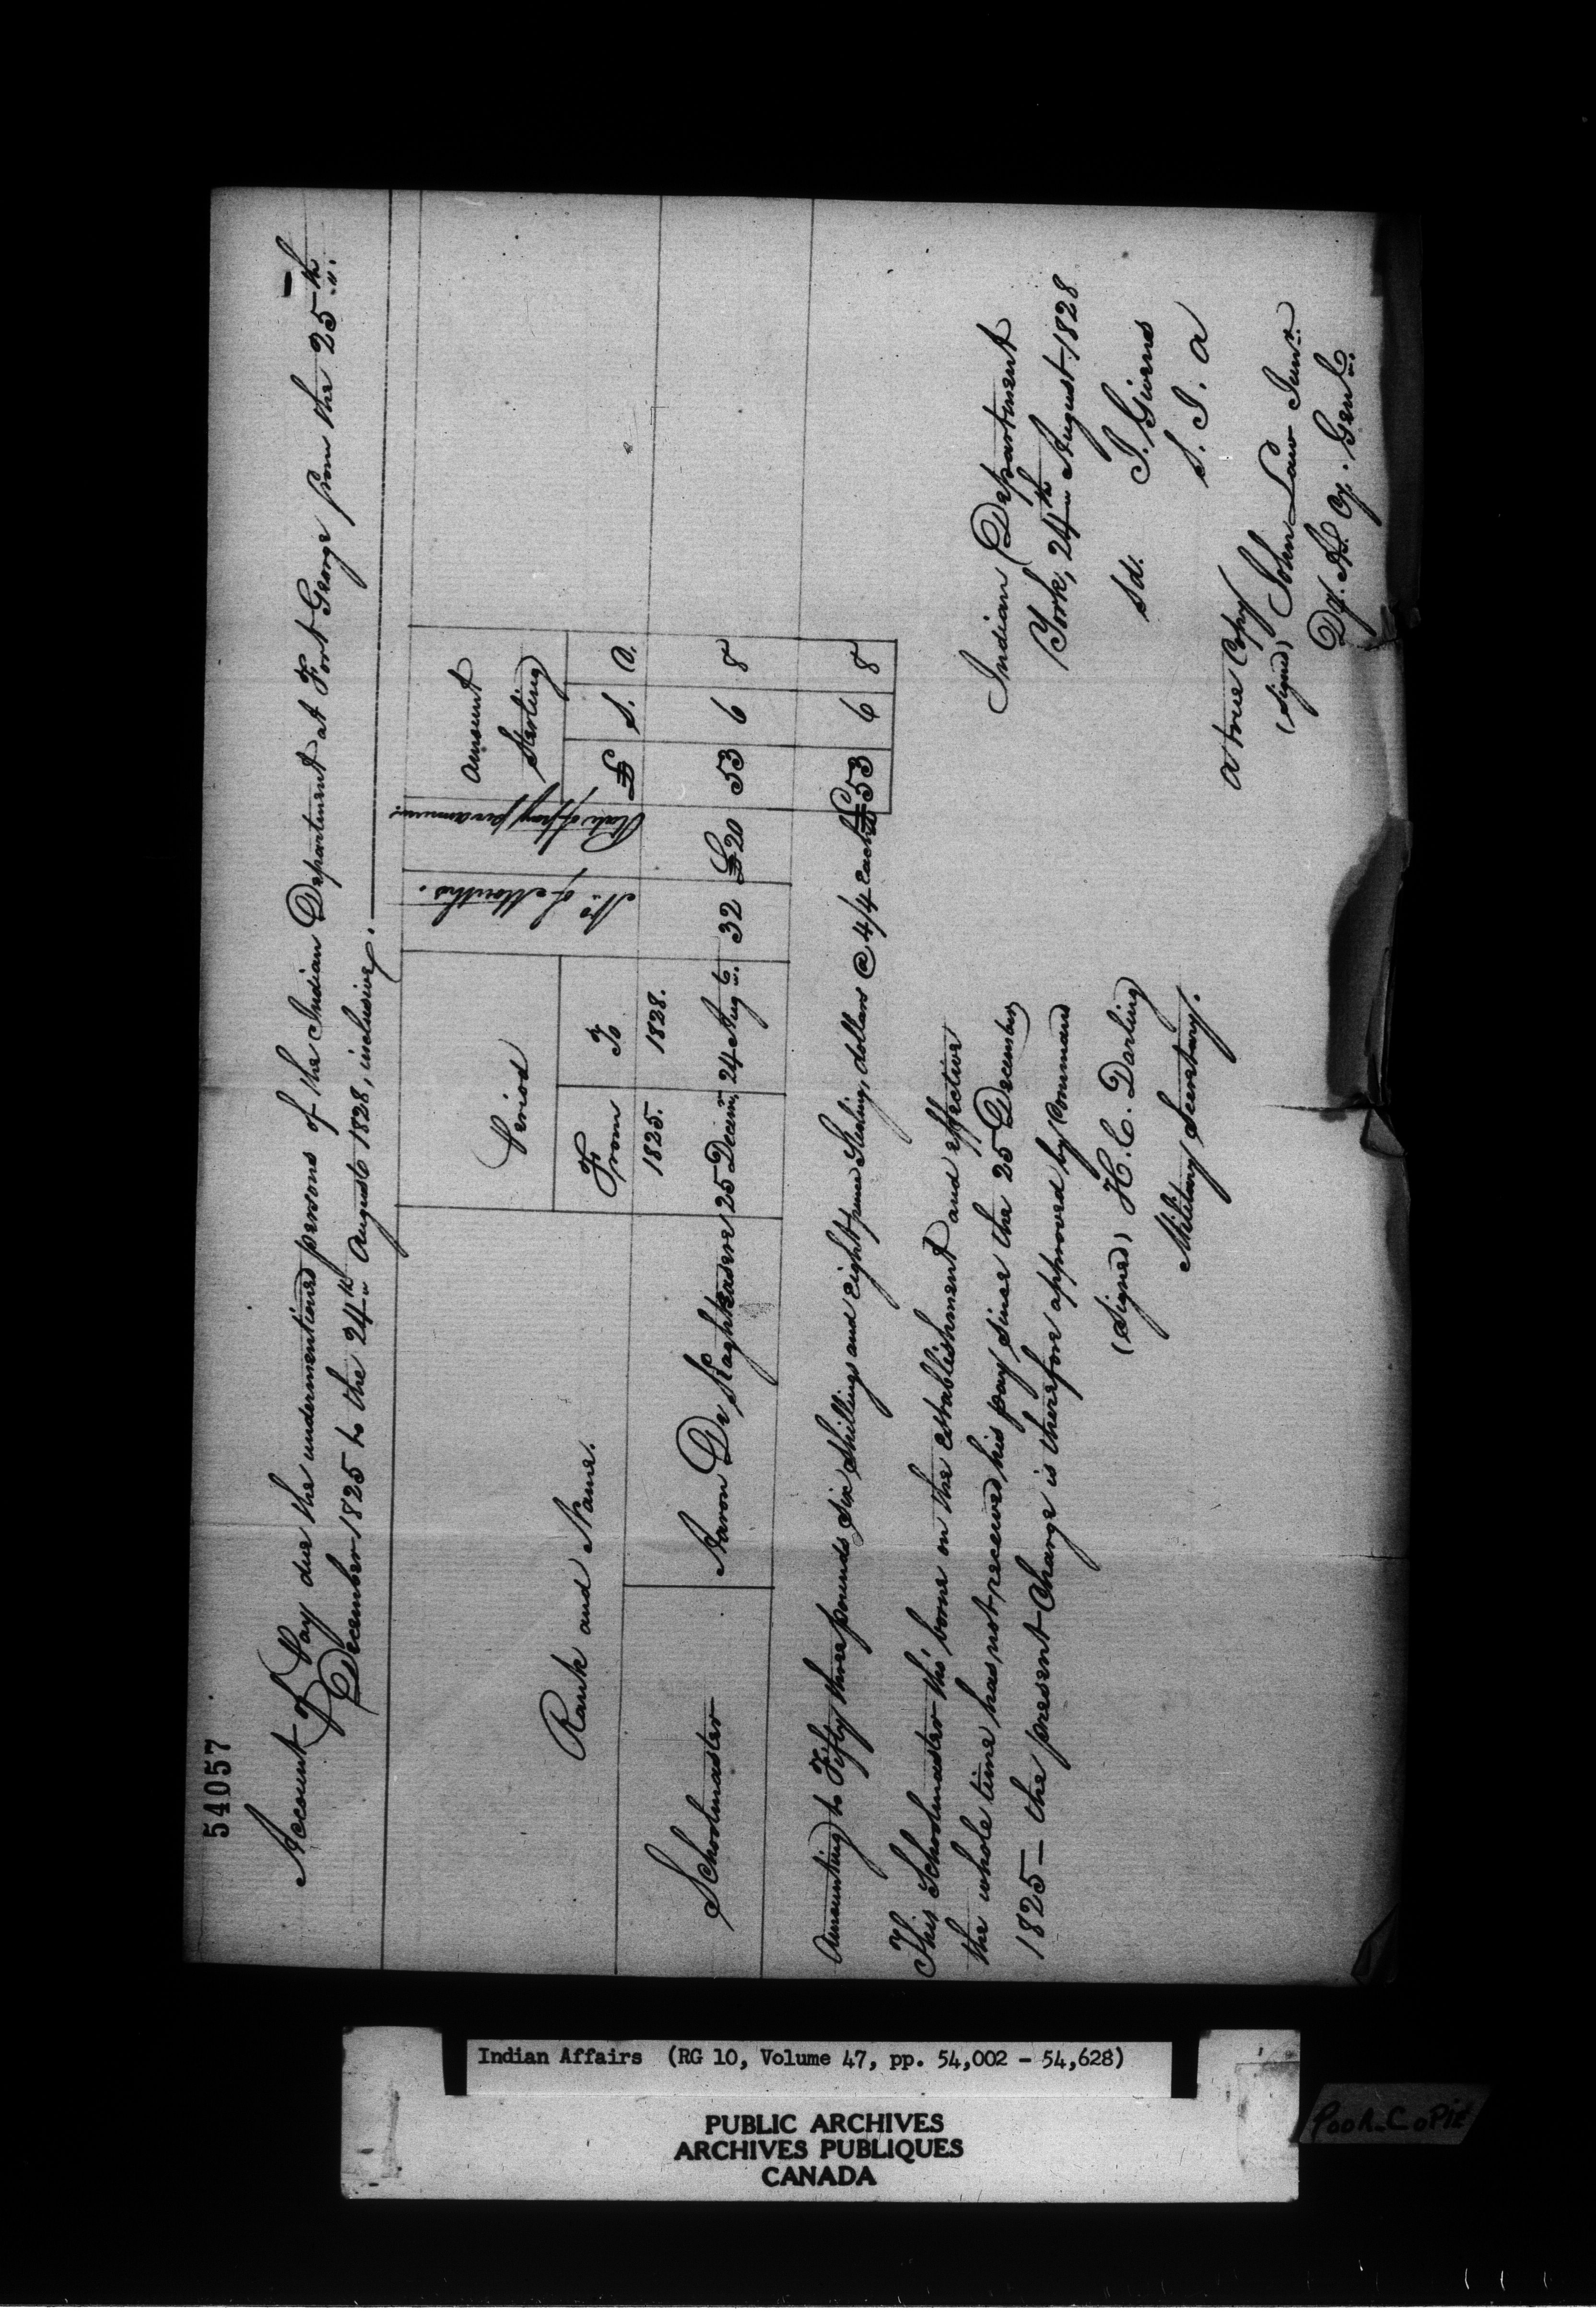 54057
Account of Pay due the undermentioned persons of the Indian Department at Fort George from the 25th
December 1825 to the 24th August 1828, inclusive.
Rank and Name.
Period
No. of Months.
Rate of pay per annum.
Amount Sterling
From
To
£ S. D.
1825. 1828.
Schoolmaster Aaron De 25 Decemr. 24 Augt. 32 £20 53 6 8
Amounting to Fifty three pounds six shillings and eight pence Sterling, dollars @ 4/4 each £53 6 8
This Schoolmaster tho' borne on the establishment and effective
the whole time has not received his pay since the 25 December
1825 — the present charge is therefore approved by Command
(Signed) H. C. Darling
Military Secretary.
Indian Department
York, 24th August 1828
sd. J. Givens
S. I. A
A true Copy
(signed) John Law Junr.
Dy. At. Cy. Genl.
Indian Affairs (RG 10, Volume 47, pp. 54,002 - 54,628)
PUBLIC ARCHIVES
ARCHIVES PUBLIQUES
CANADA
POOR COPIE